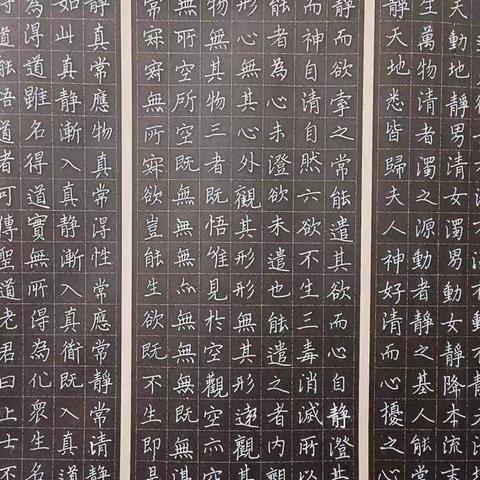 天動地靜男清女濁男動女靜降本流末
生萬物清者濁之源動者靜之基人能常
靜天地悉皆歸夫人神好清而心擾之心
靜而欲牽之常能遣其欲而心自靜澄其
而神自清自然六欲不生三毒消滅所以
能者為心未澄欲未遣也能遣之者內觀
形心無其心外觀其形形無其形遠觀其
物無其物三者既悟惟見於空觀空亦
無所空所空既無無無亦無無無既無湛
常寂寂無所寂欲豈能生欲既不生即是
靜真常應物真常得性常應常靜常清靜
如此真靜漸入真靜漸入真道既入真道
為得道雖名得道實無所得為化眾生名
得道能悟道者可傳聖道老君曰上士不